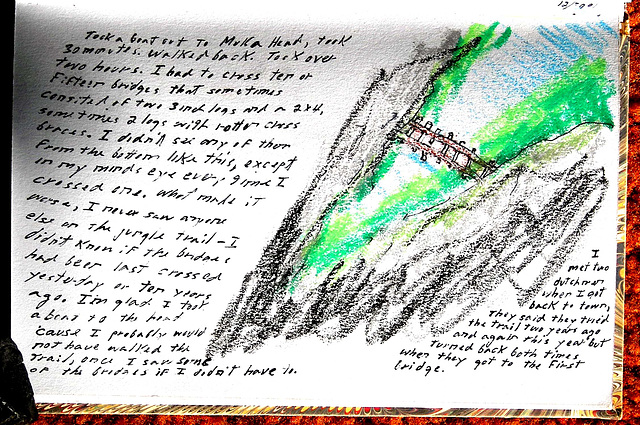 12/00
Took a boat out To Muka Head, took
30 minutes. Walked back. Took over
two hours. I had to cross ten or
Fifteen bridges that sometimes
consisted of two 3 inch logs and a 2x4,
sometimes 2 logs with rotten cross
braces. I didn't see any of them
From the bottom like this, except
in my minds eye every time I
crossed one. What made it
worse, I never saw anyone
else on the jungle trail - I
didn't know if the bridges
had been last crossed
yesterday or ten years
ago. I'm glad I took
a boat to the head
'cause I probably would
not have walked the
trail, once I saw some
of the bridges if I didn't have to.
I
met two
dutchmen
when I got
back to town,
They said they tried
the trail two years ago
and again this year but
Turned back both times
when they got to the First
bridge.